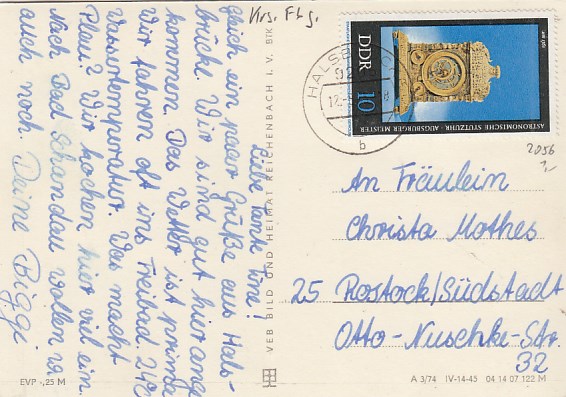 Krs. Fbg.
Liebe Tante Tine!
gleich ein paar Grüße aus Hals-
brücke. Wir sind gut hier ange
kommen. Das Wetter ist prima
Wir fahren oft ins Freibad. 24°C
Wassertemperatur. Was macht
Plau? Wir kochen hier viel ein.
Nach Bad Schandau wollen wir
auch noch. Deine Biggi
VEB BILD UND HEIMAT REICHENBACH I. V. BTK
HALSBRÜCKE
92
12.
b
DDR
10
ASTRONOMISCHE STUTZUHR · AUGSBURGER MEISTER
um 1560
2056
An Fräulein
Christa Mothes
25 Rostock/Südstadt
Otto-Nuschke-Str.
32
EVP -,25 M
A 3/74 IV-14-45 04 14 07 122 M